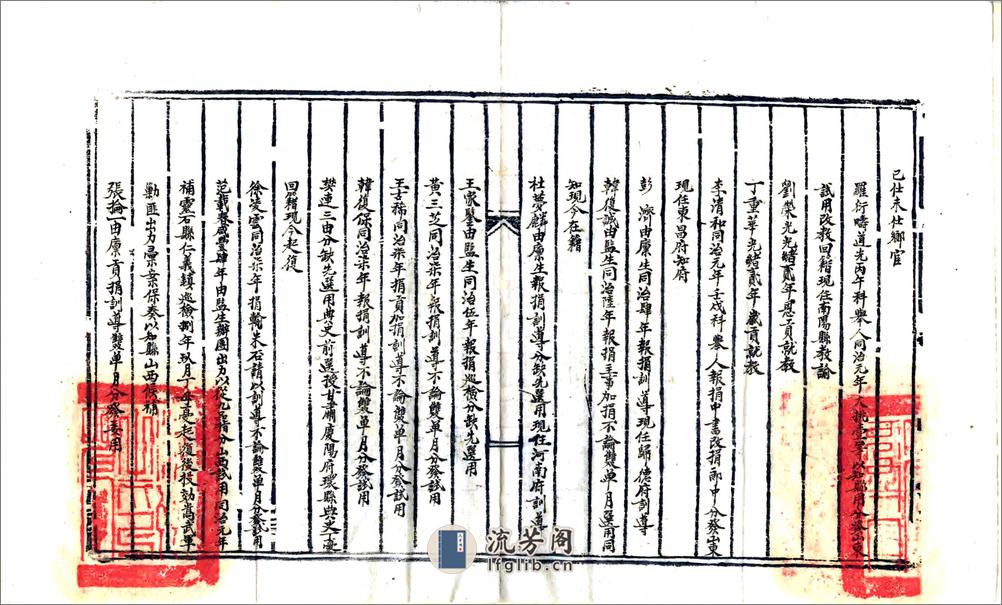 已仕未仕鄉官
羅衍疇道光丙午科舉人同治元年大挑壹等以知縣用分發山東
試用改教回籍現任南陽縣教諭
劉榮光光緒貳年恩貢就教
丁重華光緒貳年歲貢就教
李清和同治元年壬戌科舉人報捐中書改捐郎中分發山東
現任東昌府知府
彭濟由廩生同治肆年報捐訓導現任歸德府訓導
韓復誠由監生同治陸年報捐主事加捐不論雙單月選用同
知現今在籍
杜夢麟由廩生報捐訓導分缺先選用現任河南府訓導
王家璧由監生同治伍年報捐巡檢分缺先選用
黃三芝同治柒年報捐訓導不論雙單月分發試用
王古稀同治柒年捐貢加捐訓導不論雙單月分發試用
韓復保同治柒年報捐訓導不論雙單月分發試用
樊連三由分缺先選用典史前選授甘肅慶陽府環縣典史丁憂
回籍現今起復
徐凌雲同治柒年捐輸米石請以訓導不論雙單月分發試用
范載春咸豐肆年由監生辦團出力以從九品指分山西試用同治元年
補靈石縣仁義鎮巡檢捌年玖月丁母憂起復後投効嵩武軍
勦匪出力彙案保奏以知縣山西候補
張掄一由廩貢捐訓導雙單月分發委用
流芳阁
lfglib.cn